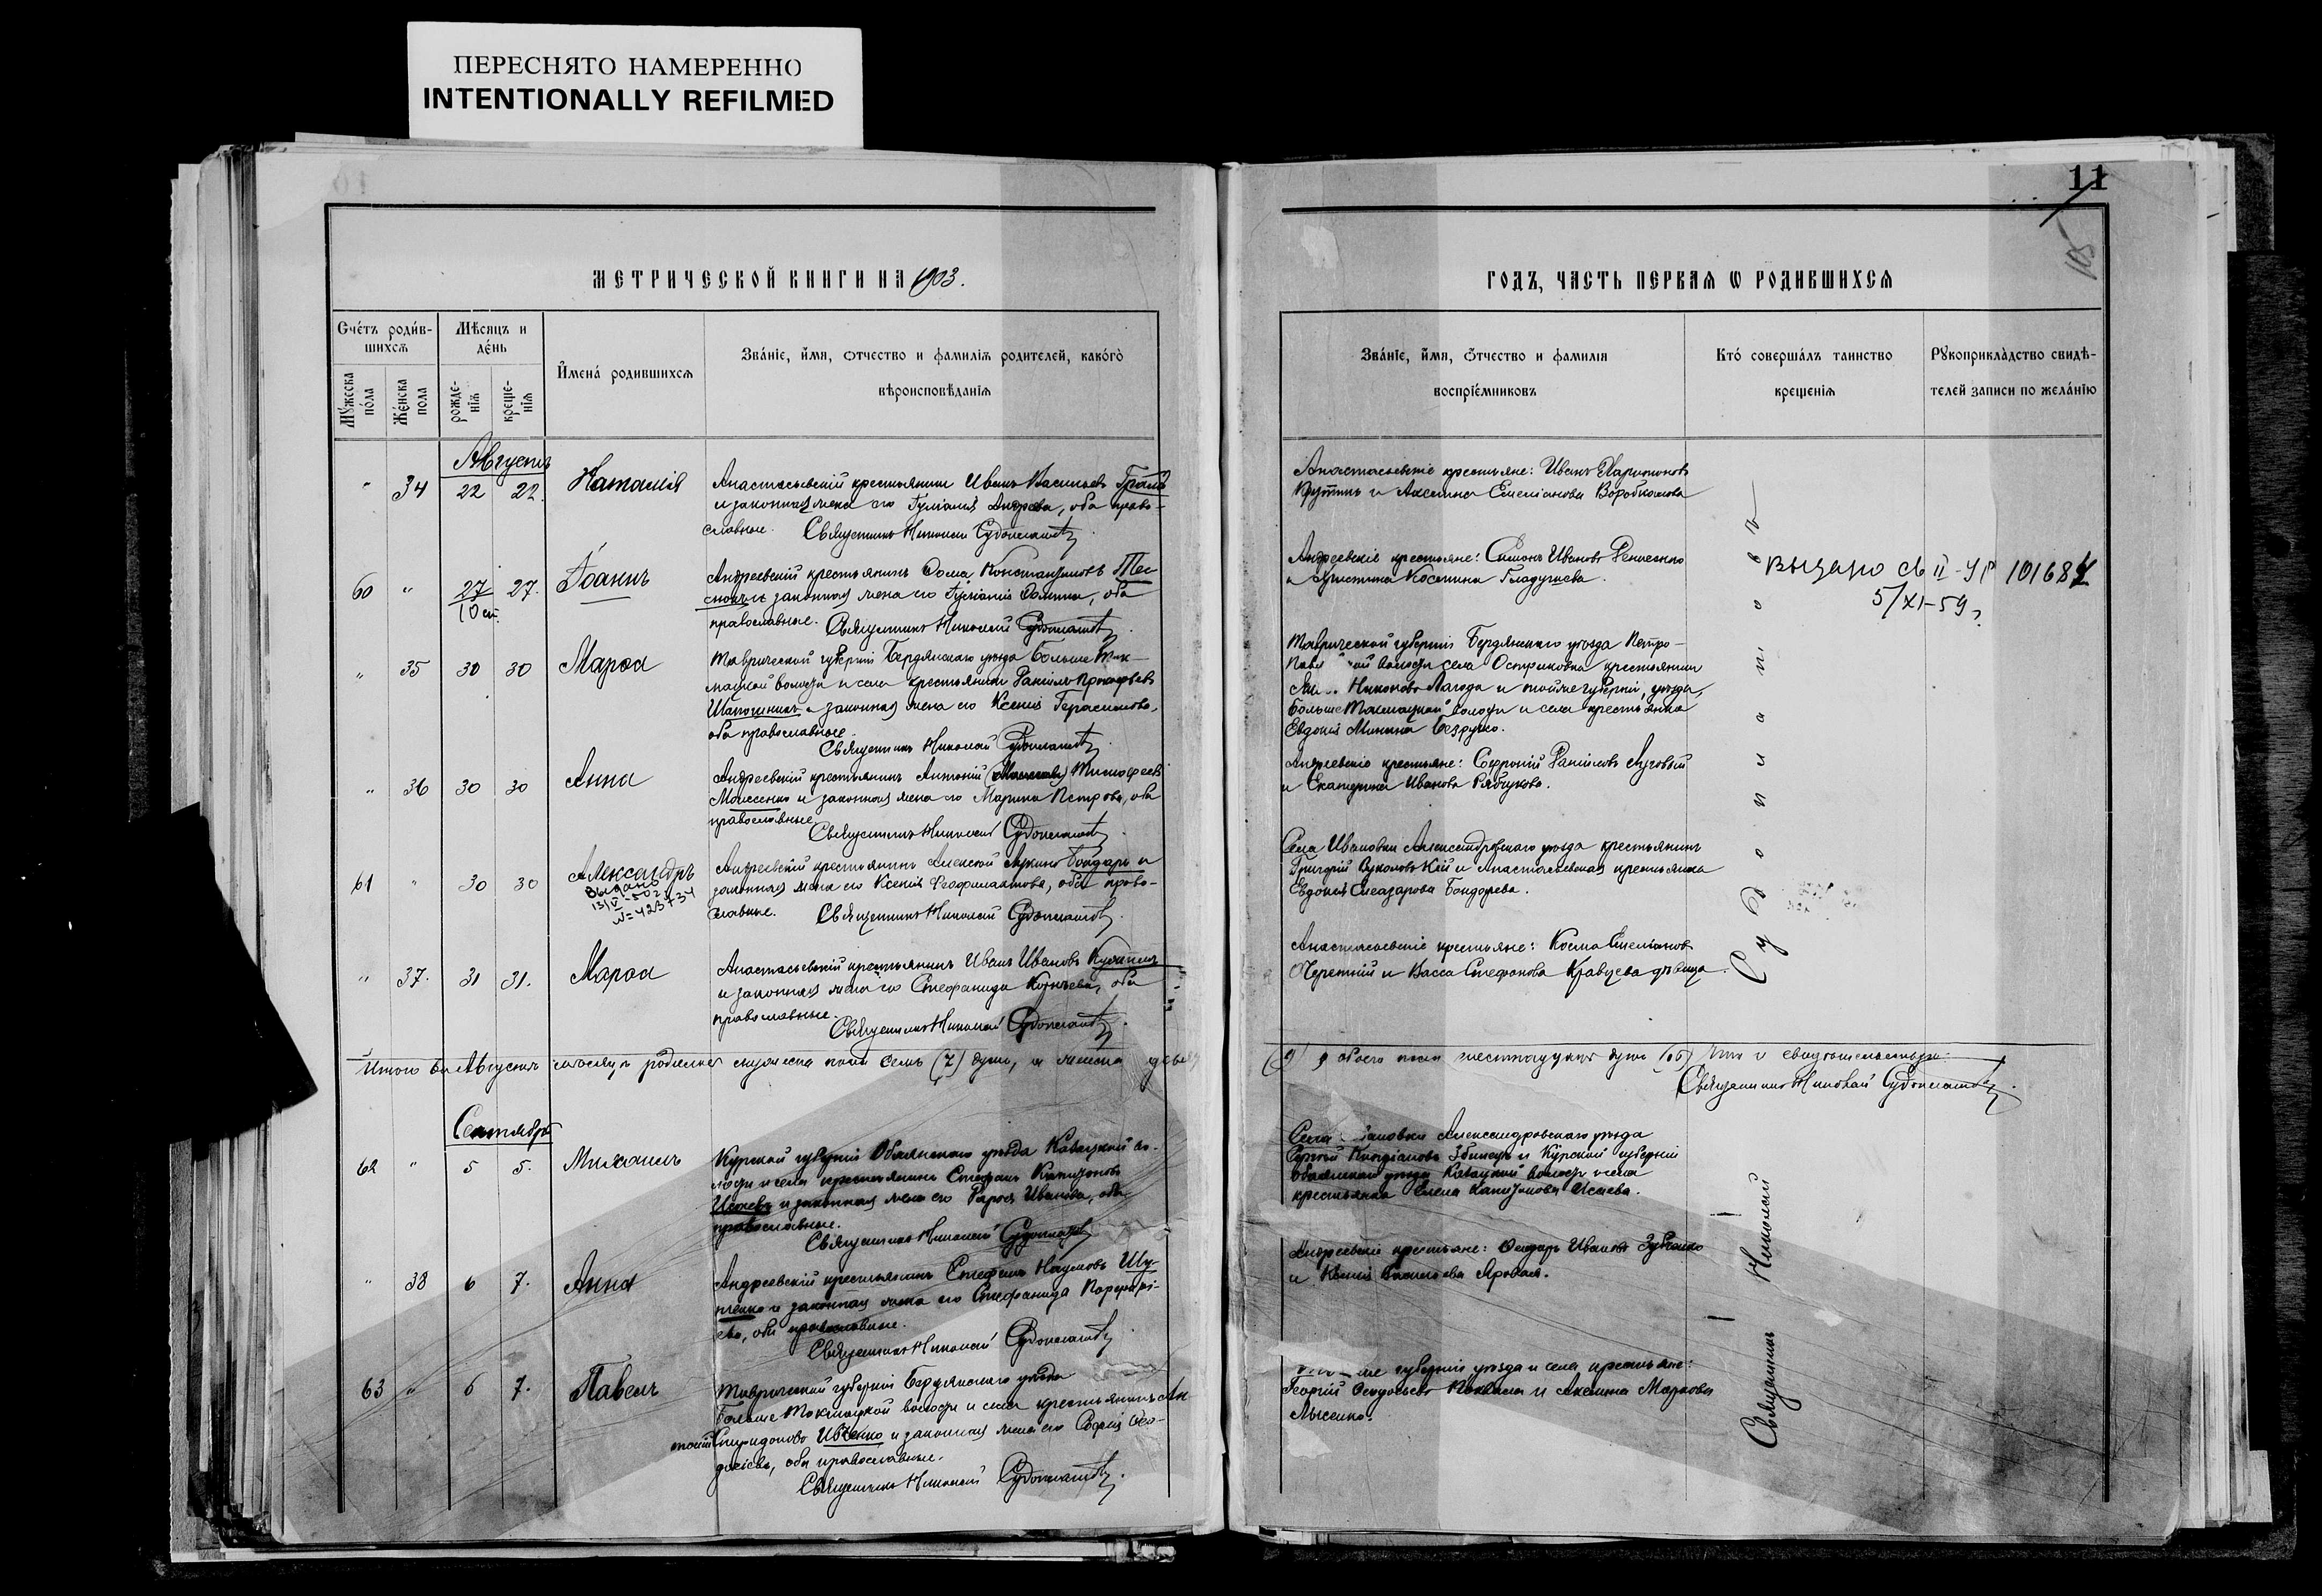 ПЕРЕСНЯТО НАМЕРЕННО
INTENTIONALLY REFILMED
11
105
МЕТРИЧЕСКОЙ КНИГИ НА 1903.
ГОДЪ, ЧАСТЬ ПЕРВАЯ Ѡ РОДИВШИХСЯ
Счетъ родив-
шихся
Мужеска пола
Женска пола
Мѣсяцъ и
день
рожде-
нія
креще-
нія
Имена родившихся
Званіе, имя, отчество и фамилія родителей, какого
вѣроисповѣданія
Званіе, имя, отчество и фамилія
воспріемниковъ
Кто совершалъ таинство
крещенія
Рукоприкладство свидѣ-
телей записи по желанію
Августъ
" 34 22 22. Наталія
Анастасьевскій крестьянинъ Иванъ Васильевъ
и законная жена его Іуліанія Андреева, оба право-
славные. Священникъ Николай Судоплатовъ
Анастасьевскіе крестьяне: Иванъ Харитоновъ
и Аксинья Емеліанова
60 " 27 27. Іоаннъ
10 ст.
Андреевскій крестьянинъ Ѳома Константиновъ Тес-
и законная жена его Іуліанія Ѳомина, оба
православные. Священникъ Николай Судоплатовъ
Андреевскіе крестьяне: Симонъ Ивановъ
и Христина Косьмина Гладущева.
Выдано св II-УР 101684
5/XI-59г
" 35 30 30 Марѳа
Таврической губерніи Бердянскаго уѣзда Больше Ток-
мацкой волости и села крестьянинъ Даніилъ Прокофьевъ
Шапошникъ и законная жена его Ксенія Герасимова,
оба православные.
Священникъ Николай Судоплатовъ
Таврической губерніи Бердянскаго уѣзда Петро-
волости села Остриковка крестьянинъ
Никоновъ Лагода и той же губерніи, уѣзда,
Больше Токмацкой волости и села крестьянка
Евдокія Минина Безручко.
" 36 30 30 Анна
Андреевскій крестьянинъ Антоній Тимоѳеевъ
Моисеенко и законная жена его Марина Петрова, оба
православные
Священникъ Николай Судоплатовъ
Андреевскіе крестьяне: Софроній Даніиловъ Луговый
и Екатерина Иванова Рябчукова.
61 " 30 30 Александръ
Выдано
N=423734
Андреевскій крестьянинъ Алексѣй Лукинъ Бондарь и
законная жена его Ксенія Ѳеофилактова, оба право-
славные. Священникъ Николай Судоплатовъ
Села Ивановки Александровскаго уѣзда крестьянинъ
Григорій и Анастасьевская крестьянка
Евдокія Елеазарова Бондарева.
" 37. 31 31. Марѳа
Анастасьевскій крестьянинъ Иванъ Ивановъ
и законная жена его Стефанида Корнѣева, оба
православные.
Священникъ Николай Судоплатовъ
Анастасьевскіе крестьяне: Косма Емельяновъ
и Васса Стефанова Кравцева дѣвица.
Итого въ Августѣ мѣсяцѣ родилось мужеска пола семь (7) душъ, а женска
обоего пола шестнадцать душъ (16) Что и свидѣтельствую
Священникъ Николай Судоплатовъ
Сентябрь
62 " 5 5. Михаилъ
Курской губерніи Обоянскаго уѣзда во-
лости и села крестьянинъ Стефанъ Капитоновъ
Исаевъ и законная жена его Дарья Иванова, оба
православные.
Священникъ Николай Судоплатовъ
Села Александровскаго уѣзда
и Курской губерніи
Обоянскаго уѣзда волости и села
крестьянка Елена Капитонова Исаева.
" 38 6 7. Анна
Андреевскій крестьянинъ Стефанъ Наумовъ
и законная жена его Стефанида Порфирі-
ева, оба православные.
Священникъ Николай Судоплатовъ
Андреевскіе крестьяне: Ѳеодоръ Ивановъ Зубенко
и Ксенія Васильева Яровая.
63 " 6 7. Павелъ
Таврической губерніи Бердянскаго уѣзда
Больше Токмацкой волости и села крестьянинъ Ан-
тоній Спиридоновъ Ивченко и законная жена его Софія Ѳео-
досіева, оба православные.
Священникъ Николай Судоплатовъ
губерніи уѣзда и села крестьяне:
Георгій и Акилина Маркова
Лысенко.
Священникъ Николай Судоплатовъ